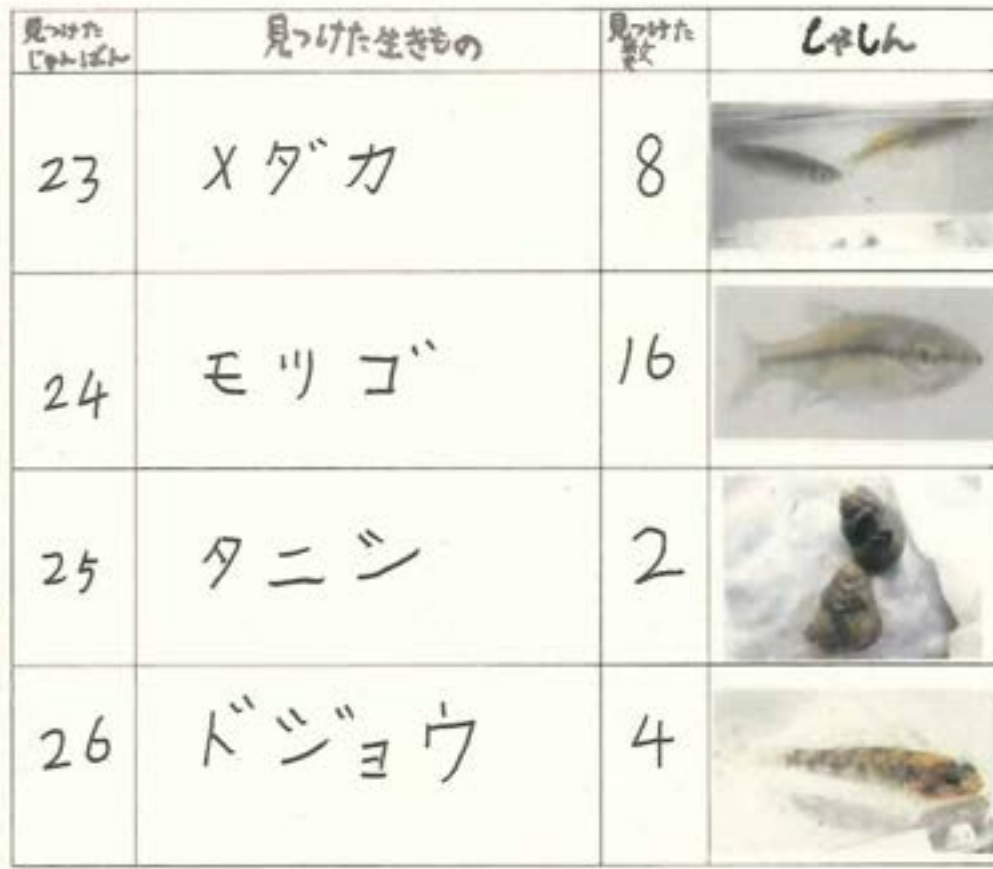 見つけたじゅんばん 見つけた生きもの 見つけた数 しゃしん
23 メダカ 8
24 モツゴ 16
25 タニシ 2
26 ドジョウ 4